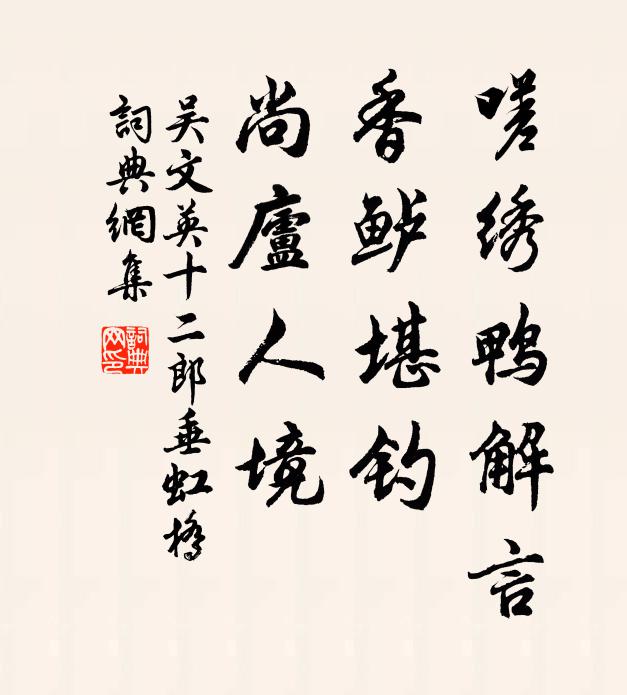 嗟绣鸭解言
香鲈堪钓
尚廬人境
吴文英十二郎垂虹橋
詞典網集
詞典
网印